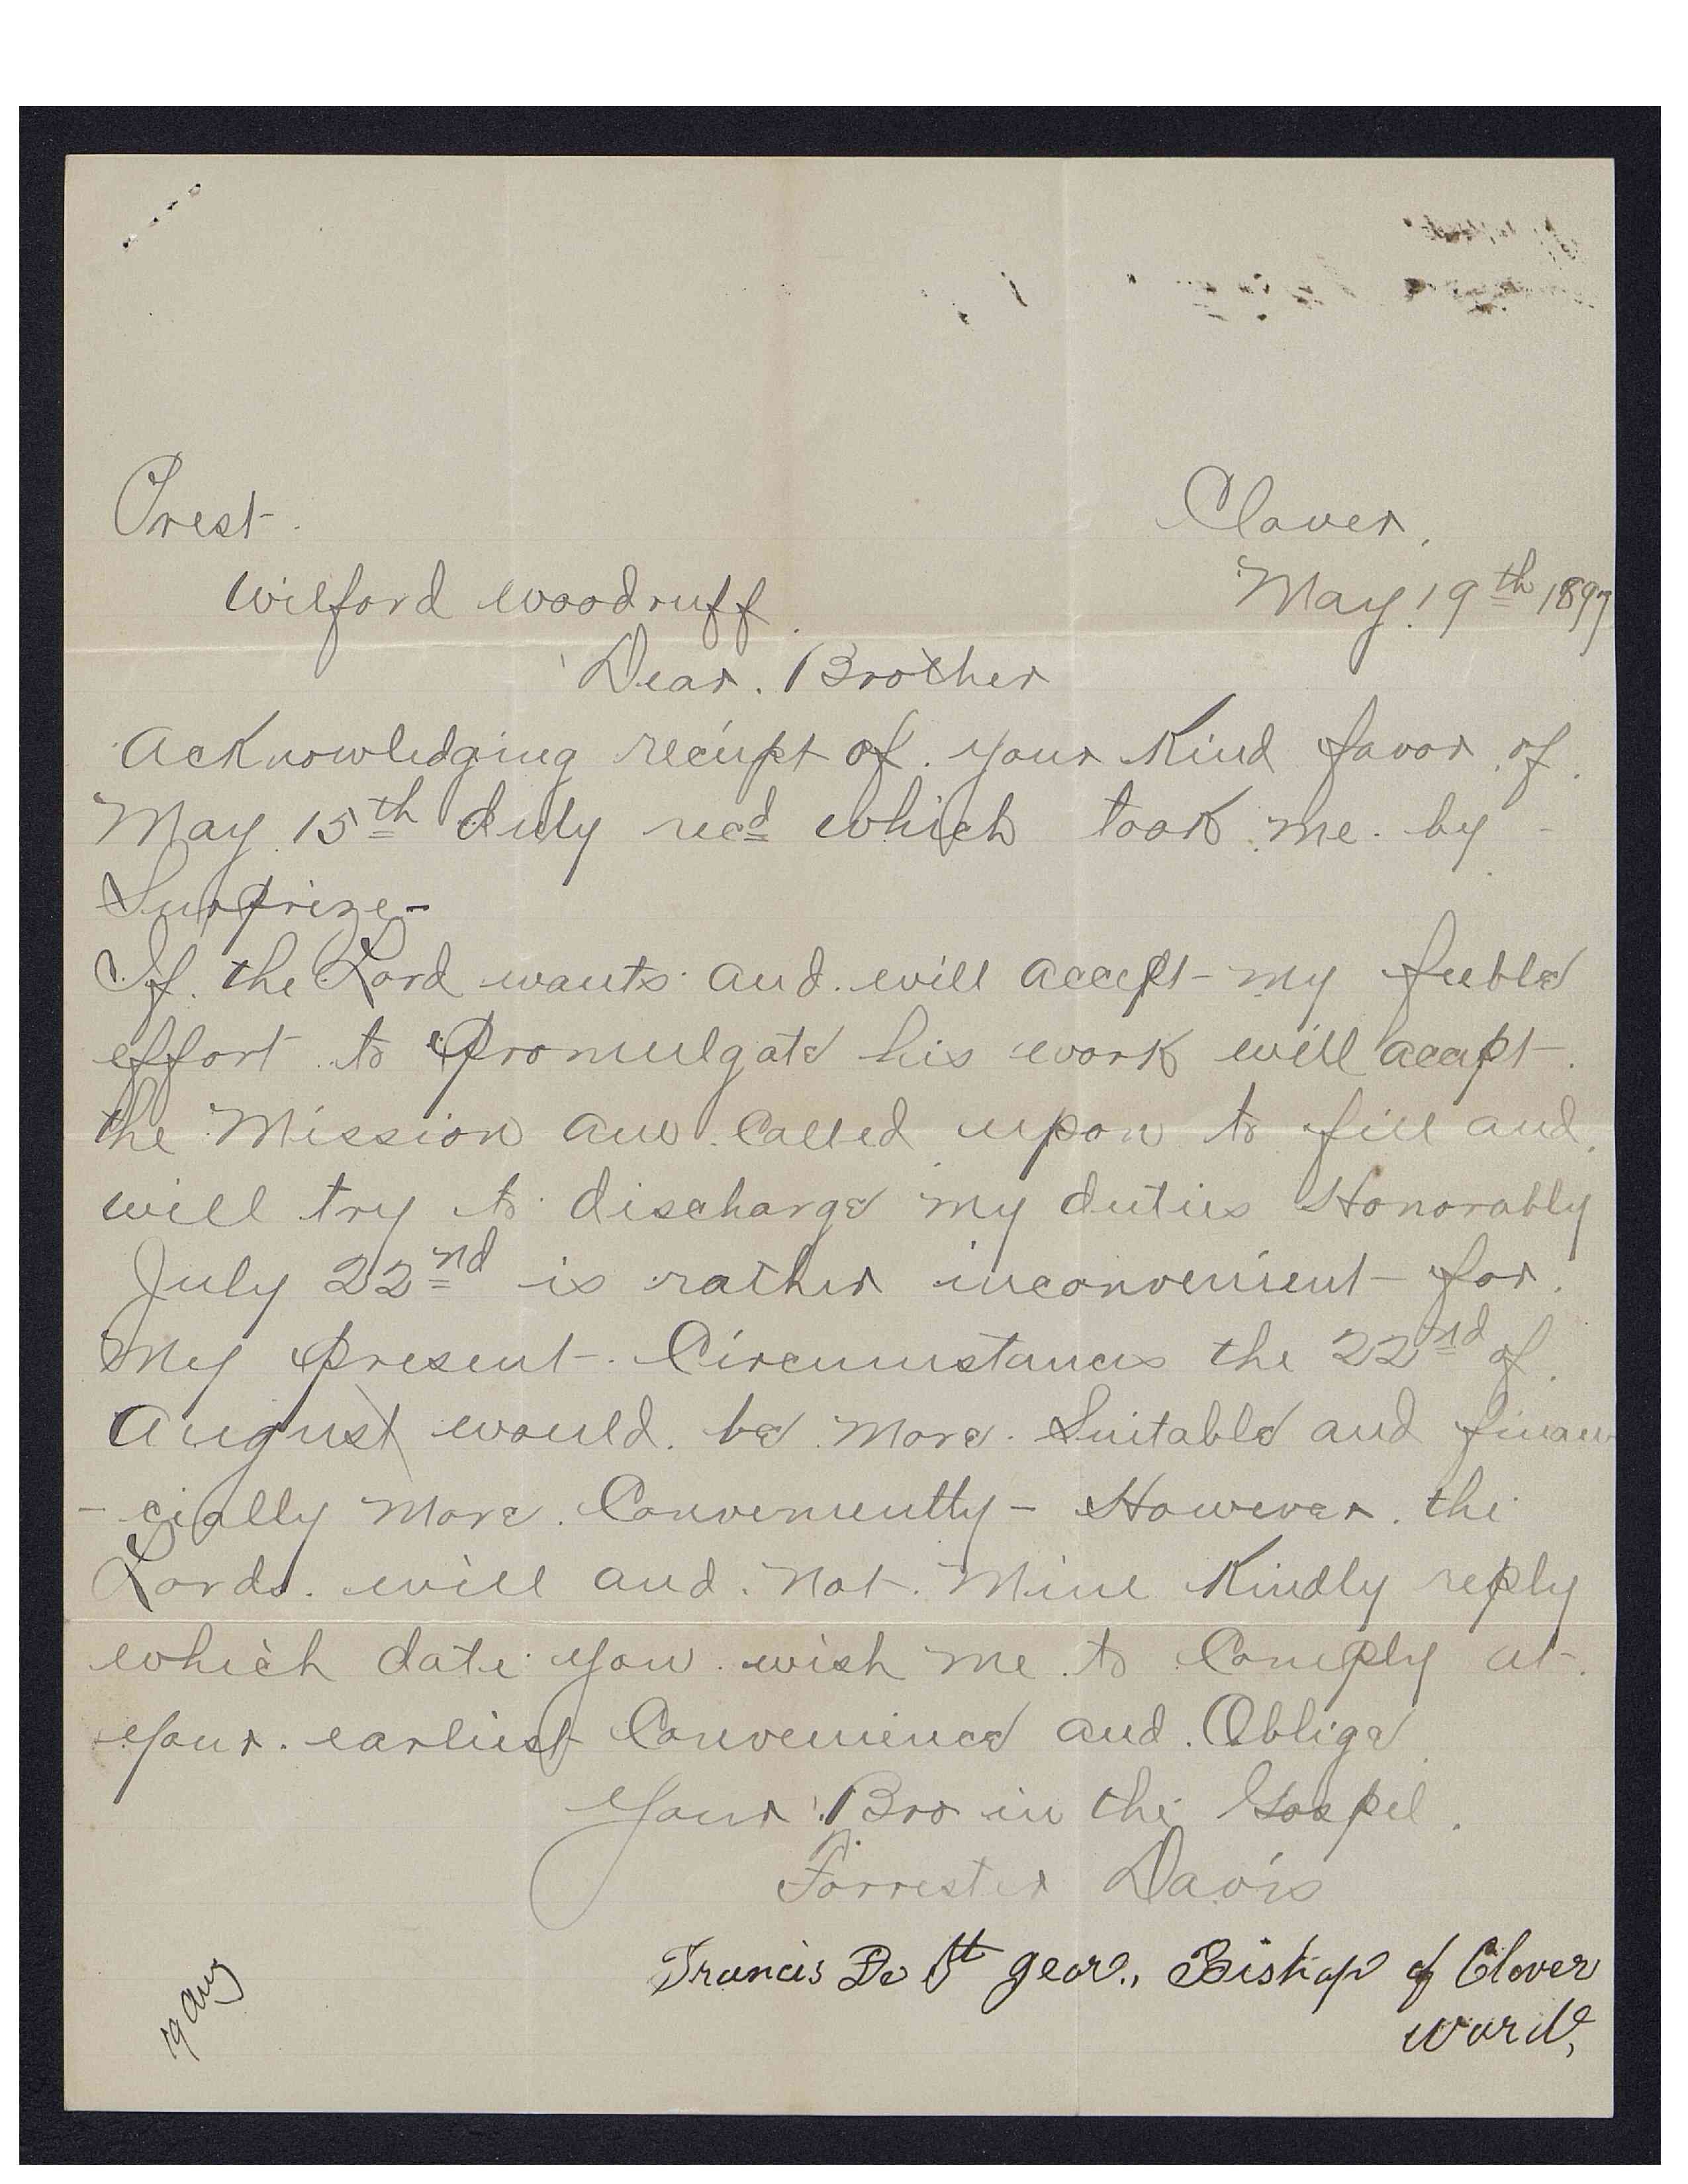 Clover,
Prest.
May 19th 1897
Wilford Woodruff.
Dear Brother
Acknowledging reciept of your Kind favor of
May 15th duly recd which took me by
Surprize—
If the Lord wants and will accept my feeble
effort to Promulgate his work will accept
the Mission am Called upon to fill and
will try to discharge my duties Honorably
July 22nd is rather inconvenient for
My Present Circumstances the 22nd of
August would be More Suitable and finan
-cially More Conveniently — However the
Lords will and Not Mine Kindly reply
which date you wish me to Comply at
your earliest Convenience and Oblige
Your Bro in the Gospel.
Forrester Davis
Francis De St Geor., Bishop of Clover
Ward,
19 Aug